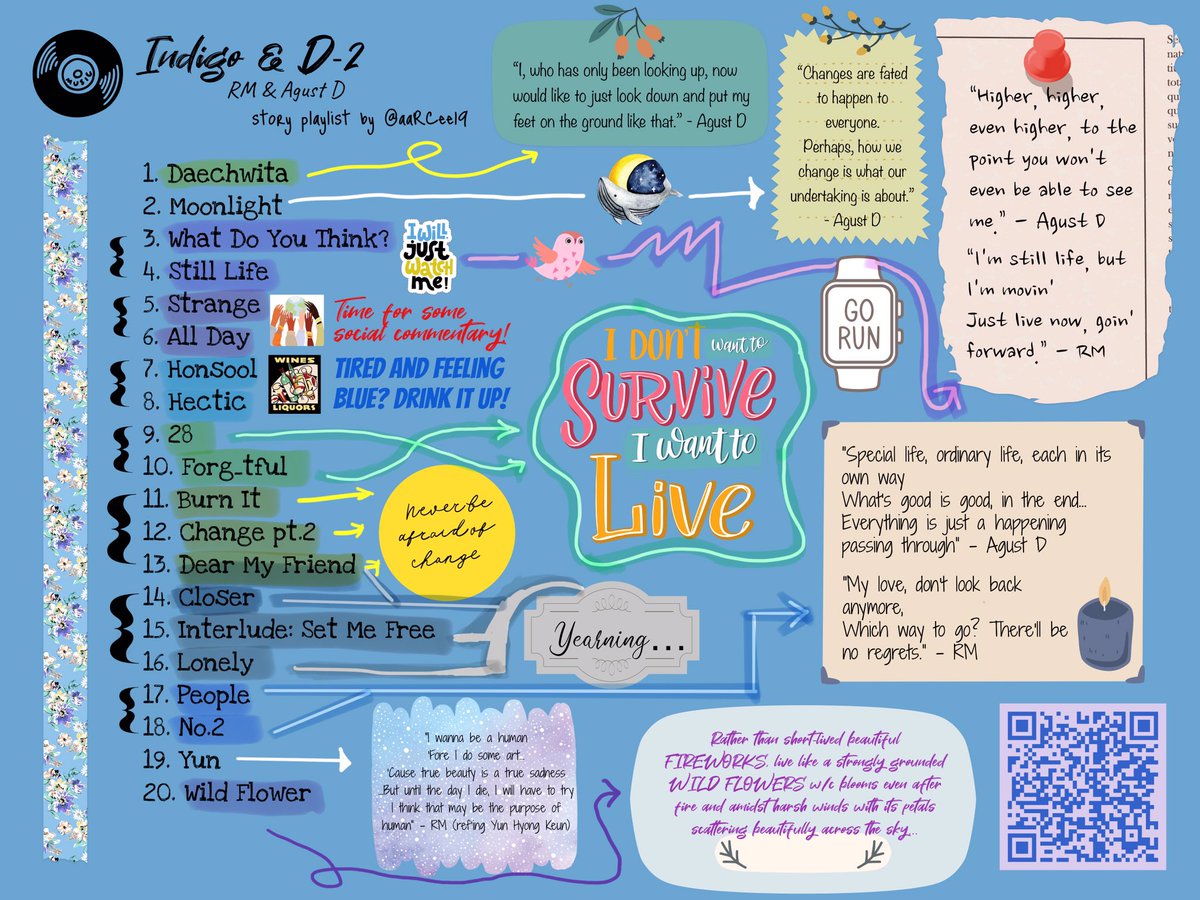 Indigo & D-2
RM & Agust D
story playlist by @aaRCee19
1. Daechwita
2. Moonlight
3. What Do You Think?
4. Still Life
5. Strange
6. All Day
7. Honsool
8. Hectic
9. 28
10. Forg_tful
11. Burn It
12. Change pt.2
13. Dear My Friend
14. Closer
15. Interlude: Set Me Free
16. Lonely
17. People
18. No.2
19. Yun
20. Wild Flower
"I, who has only been looking up, now
would like to just look down and put my
feet on the ground like that." - Agust D
"Changes are fated
to happen to
everyone.
Perhaps, how we
change is what our
undertaking is about."
- Agust D
"Higher, higher,
even higher, to the
point you won't
even be able to see
me." - Agust D
"I'm still life, but
I'm movin'
Just live now, goin'
forward." - RM
I WILL
JUST
WATCH
ME!
GO
RUN
Time for some
social commentary!
WINES
LIQUORS
TIRED AND FEELING
BLUE? DRINK IT UP!
I DON'T want to
SURVIVE
I want to
LIVE
Never be
afraid of
change
Yearning...
"Special life, ordinary life, each in its
own way
What's good is good, in the end...
Everything is just a happening
passing through" - Agust D
"My love, don't look back
anymore,
Which way to go? There'll be
no regrets." - RM
"I wanna be a human
'Fore I do some art...
'Cause true beauty is a true sadness
...But until the day I die, I will have to try
I think that may be the purpose of
human" - RM (ref'ing Yun Hyong Keun)
Rather than short-lived beautiful
FIREWORKS, live like a strongly grounded
WILD FLOWERS w/c blooms even after
fire and amidst harsh winds with its petals
scattering beautifully across the sky...